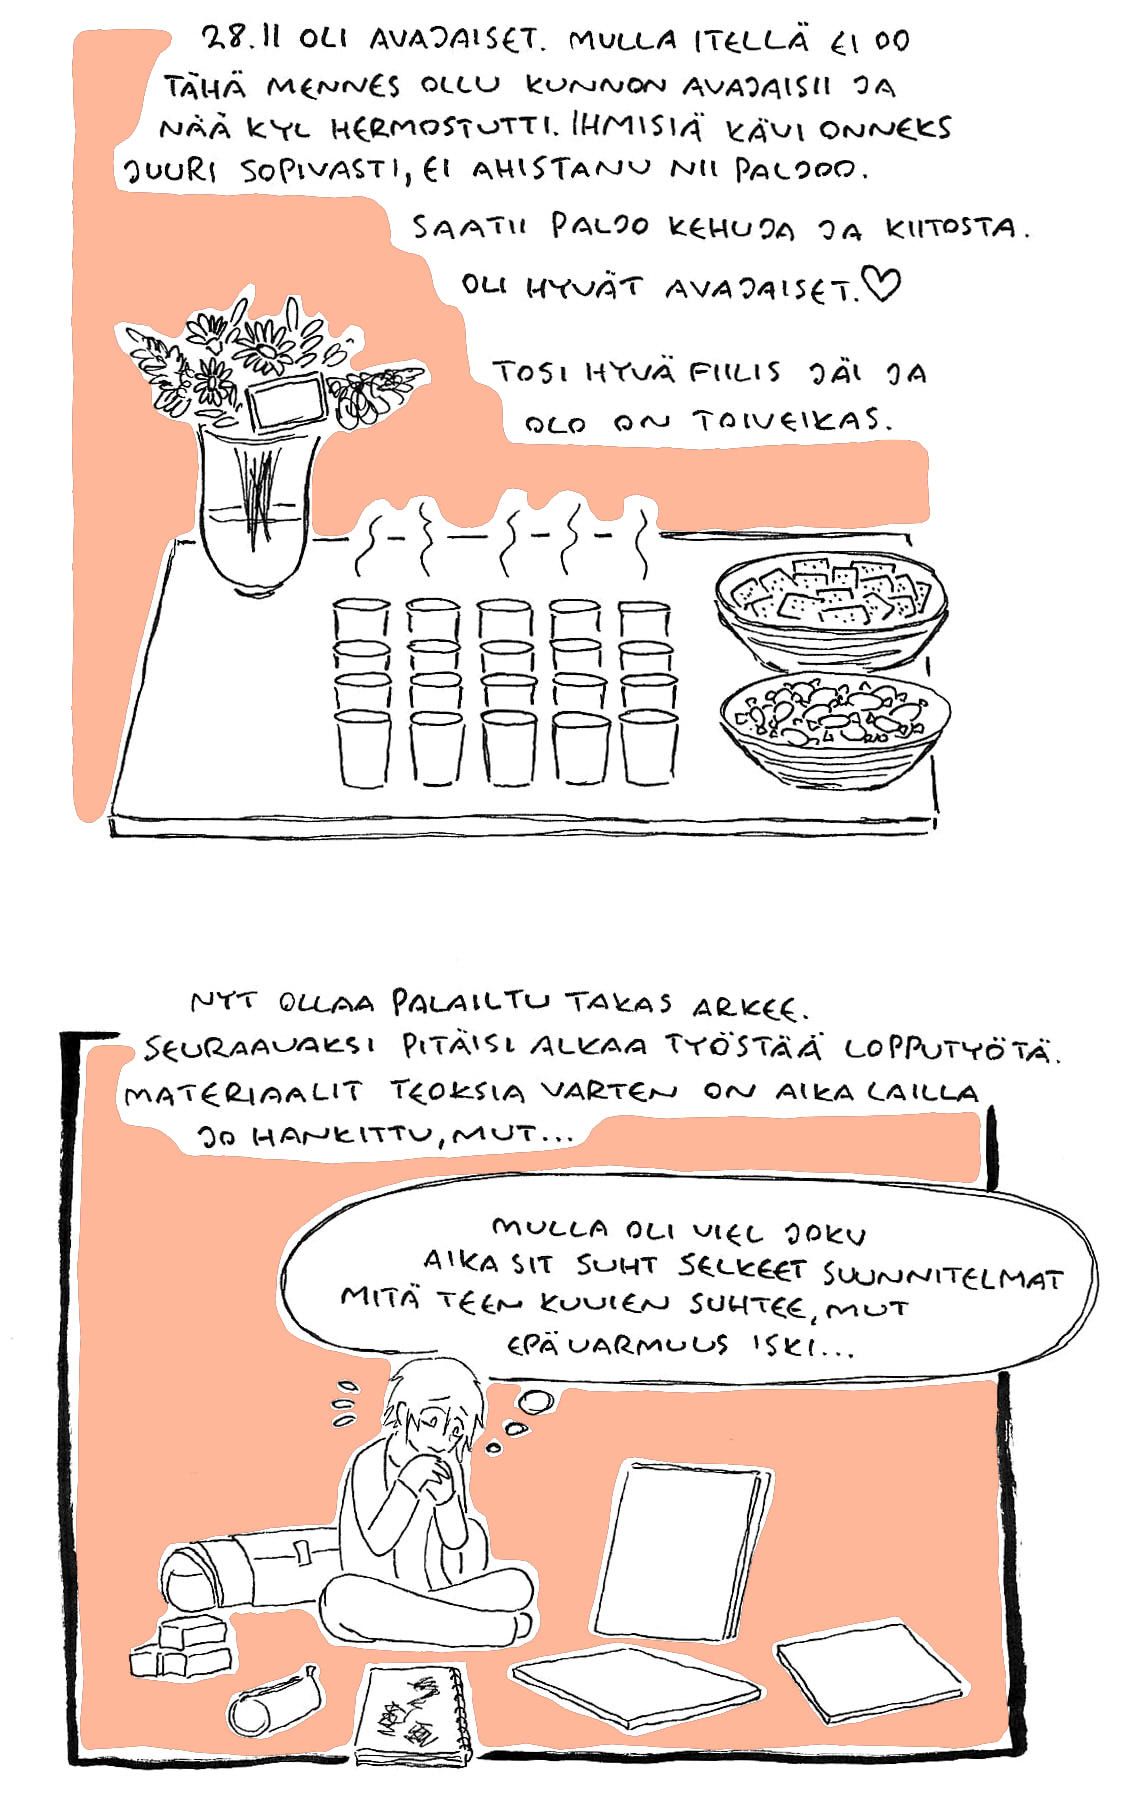 28.11 OLI AVAJAISET. MULLA ITELLÄ EI OO
TÄHÄ MENNES OLLU KUNNON AVAJAISII JA
NÄÄ KYL HERMOSTUTTI. IHMISIÄ KÄVI ONNEKS
JUURI SOPIVASTI, EI AHISTANU NII PALJOO.
SAATII PALJO KEHUJA JA KIITOSTA.
OLI HYVÄT AVAJAISET.♡
TOSI HYVÄ FIILIS JÄI JA
OLO ON TOIVEIKAS.
NYT OLLAA PALAILTU TAKAS ARKEE.
SEURAAVAKSI PITÄISI ALKAA TYÖSTÄÄ LOPPUTYÖTÄ.
MATERIAALIT TEOKSIA VARTEN ON AIKA LAILLA
JO HANKITTU, MUT...
MULLA OLI VIEL JOKU
AIKA SIT SUHT SELKEET SUUNNITELMAT
MITÄ TEEN KUVIEN SUHTEE, MUT
EPÄVARMUUS ISKI...